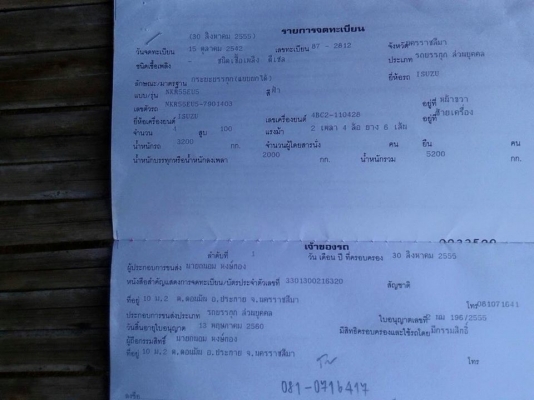 รายการจดทะเบียน
(30 สิงหาคม 2555)
วันจดทะเบียน 15 ตุลาคม 2542 เลขทะเบียน 87 - 2812 จังหวัด นครราชสีมา
ชนิดเชื้อเพลิง ดีเซล ประเภท รถบรรทุก ส่วนบุคคล
ลักษณะ/มาตรฐาน กระบะบรรทุก ยี่ห้อรถ ISUZU
แบบ/รุ่น สี ฟ้า
เลขตัวรถ อยู่ที่ หน้าขวา
ยี่ห้อเครื่องยนต์ ISUZU เลขเครื่องยนต์ 4BC2-110428 อยู่ที่ ซ้ายเครื่อง
จำนวน 4 สูบ 100 แรงม้า 2 เพลา 4 ล้อ ยาง 6 เส้น
น้ำหนักรถ 3200 กก. จำนวนผู้โดยสารนั่ง คน ยืน คน
น้ำหนักบรรทุกหรือน้ำหนักลงเพลา 2000 กก. น้ำหนักรวม 5200 กก.
เจ้าของรถ
ลำดับที่ 1 วัน เดือน ปี ที่ครอบครอง 30 สิงหาคม 2555
ผู้ประกอบการขนส่ง นายถนอม
หนังสือสำคัญแสดงการจดทะเบียน/บัตรประจำตัวเลขที่ 3301300215320 สัญชาติ
ที่อยู่ 10 ม.2 ต. อ. จ.นครราชสีมา โทร
ประกอบการขนส่งประเภท รถบรรทุก ส่วนบุคคล ใบอนุญาตเลขที่ นม 196/2555
วันสิ้นอายุใบอนุญาต 12 พฤษภาคม 2560 มีสิทธิครอบครองและใช้รถโดย มีกรรมสิทธิ์
ผู้ถือกรรมสิทธิ์ นายถนอม
ที่อยู่ 10 ม.2 ต. อ. จ.นครราชสีมา โทร
081-0716417